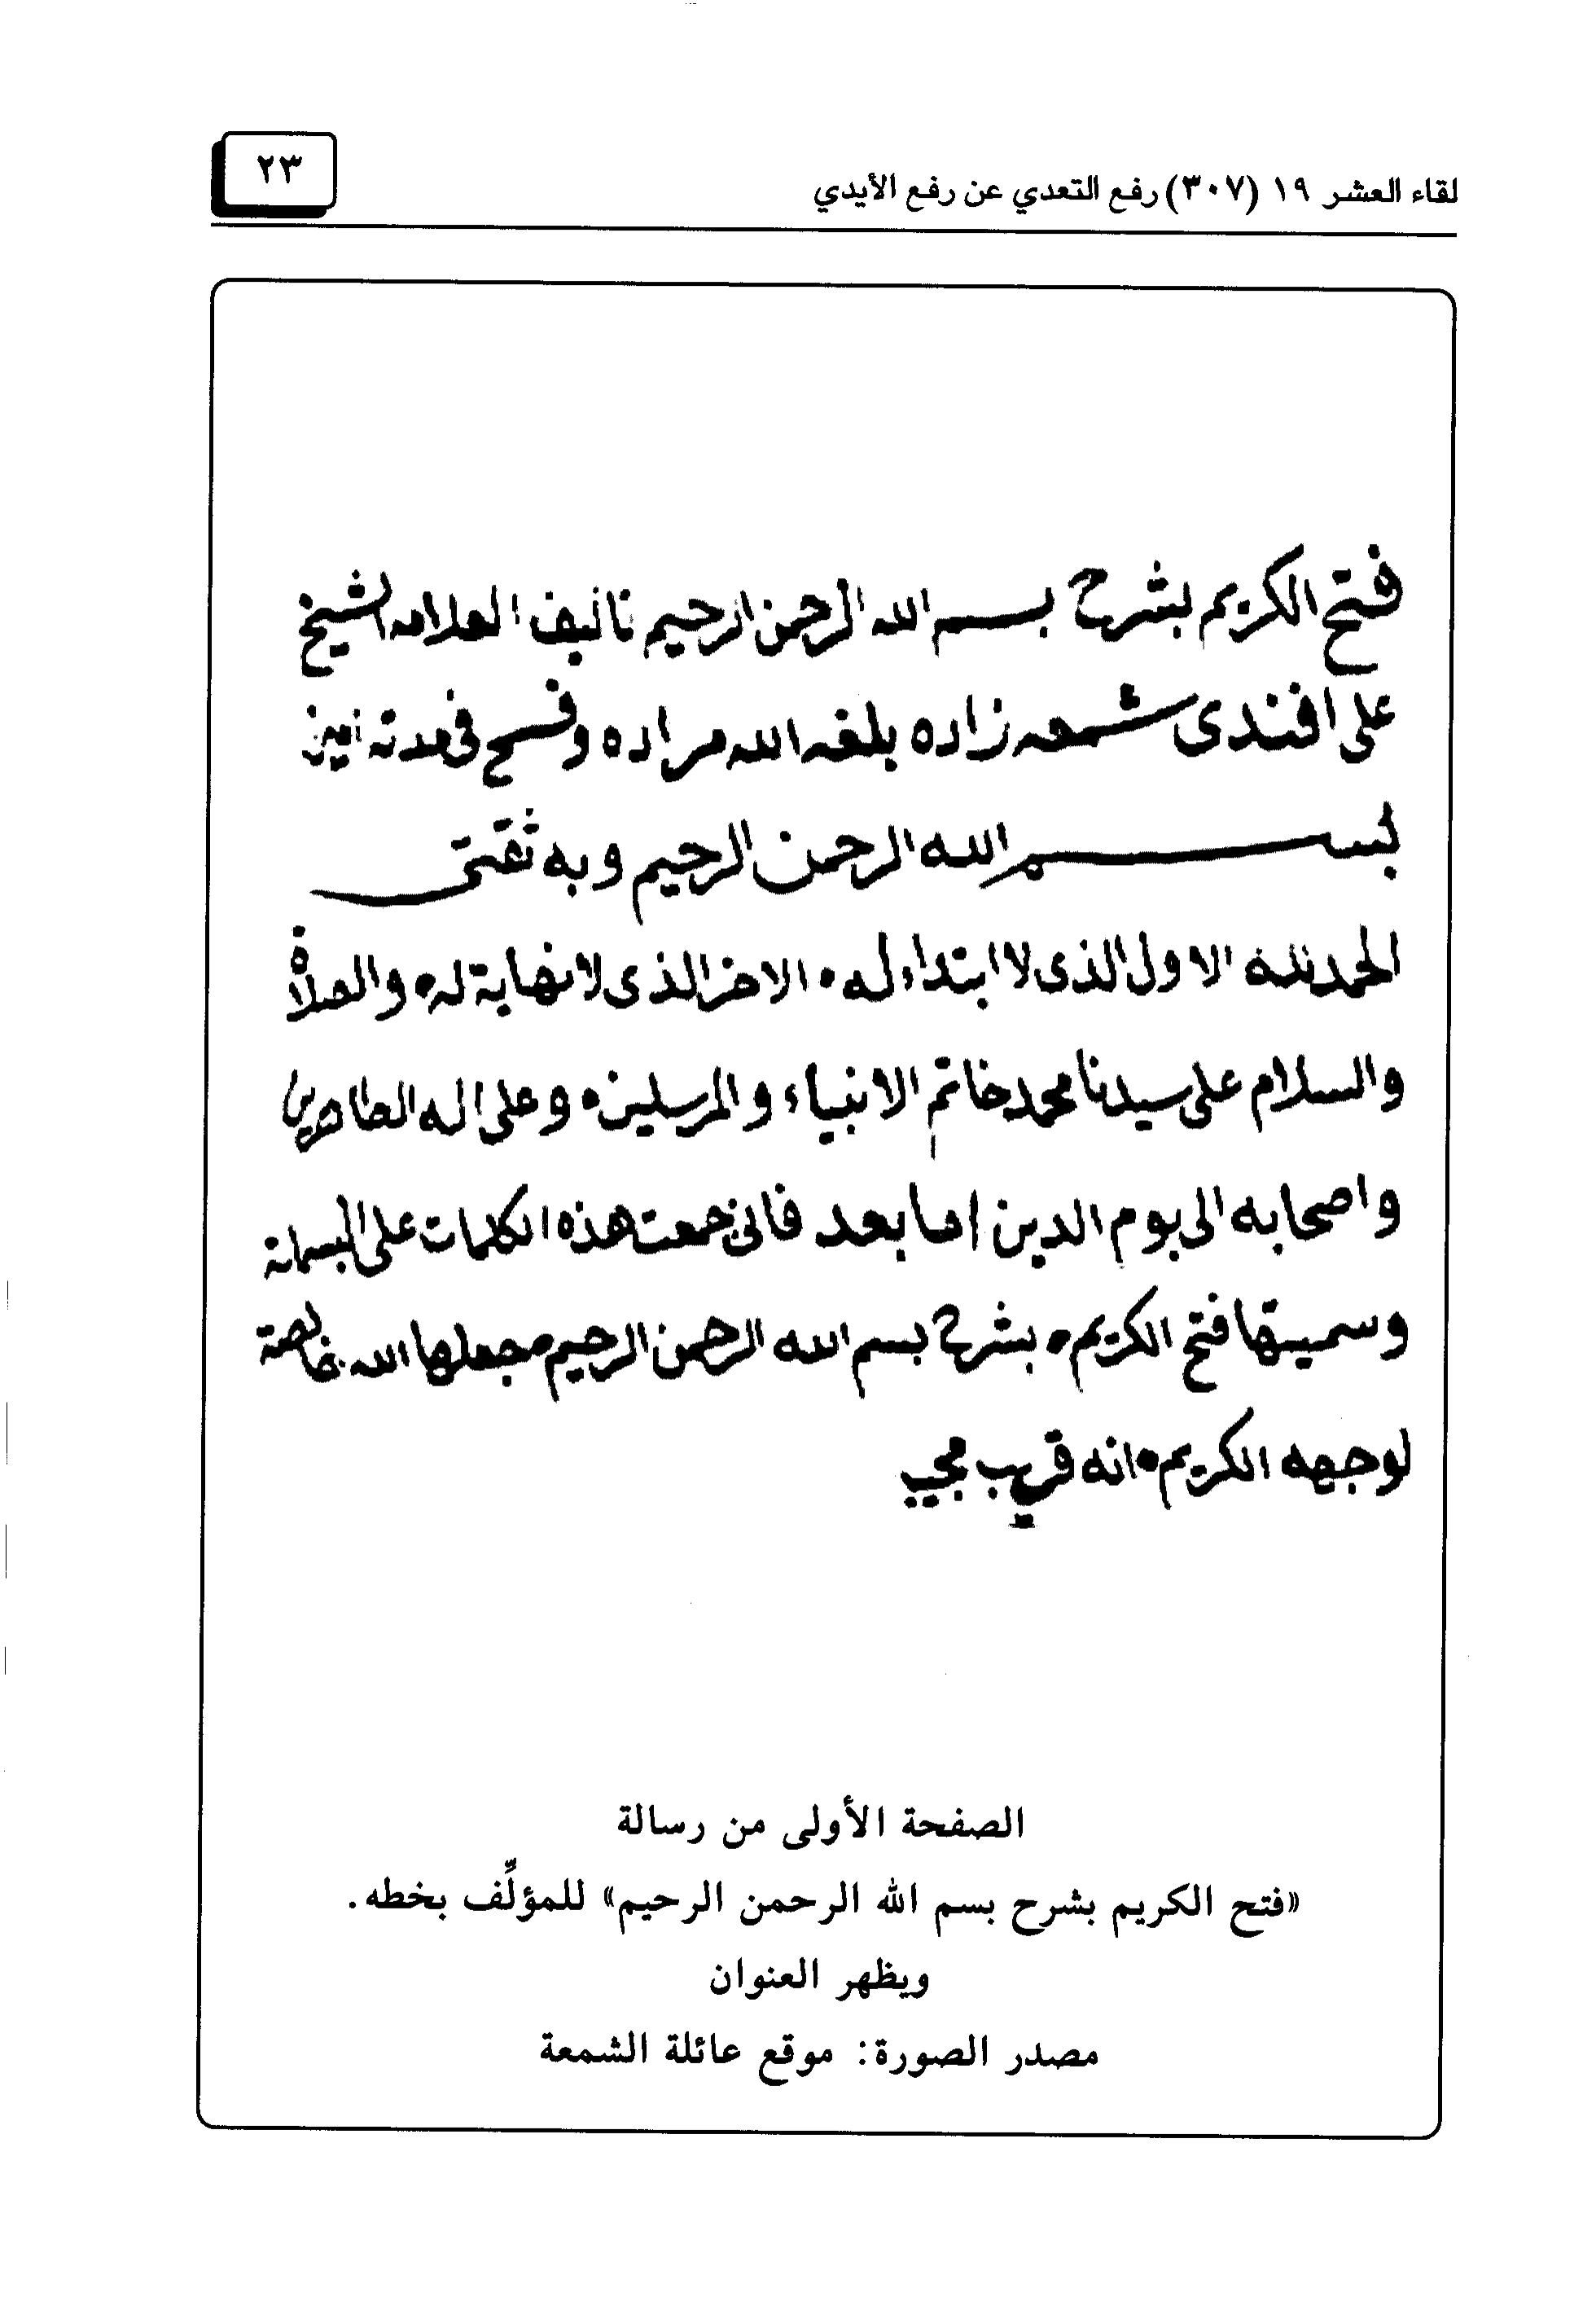 لقاء العشر ١٩ (٣٠٧) رفع التعدي عن رفع الأيدي
٢٣
فتح الكريم بشرح بسم الله الرحمن الرحيم تاليف العلامه الشيخ
على افندى شمعه زاده بلغه الله مراده وفسح فى مدته امين
بسم الله الرحمن الرحيم وبه ثقتى
الحمد لله الاول الذى لا ابتداء له الاخر الذى لا نهاية له والصلاة
والسلام على سيدنا محمد خاتم الانبياء والمرسلين وعلى اله الطاهرين
واصحابه الى يوم الدين اما بعد فانى جمعت هذه الكلمات على البسملة
وسميتها فتح الكريم بشرح بسم الله الرحمن الرحيم جعلها الله خالصة
لوجهه الكريم انه قريب مجيب
الصفحة الأولى من رسالة
«فتح الكريم بشرح بسم الله الرحمن الرحيم» للمؤلِّف بخطه.
ويظهر العنوان
مصدر الصورة: موقع عائلة الشمعة